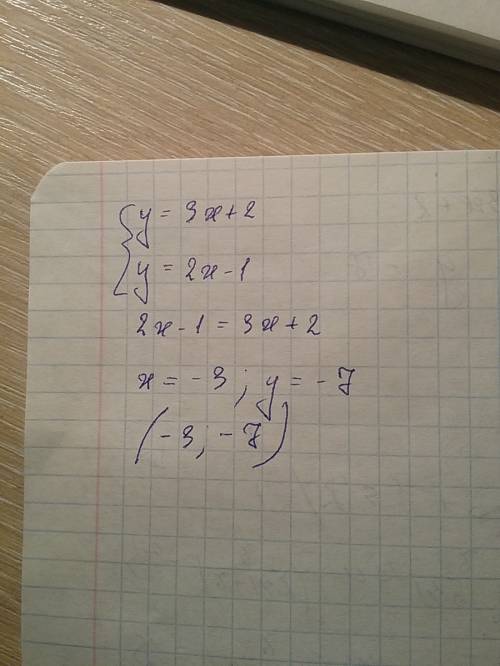 { y = 3x + 2
y = 2x - 1
2x - 1 = 3x + 2
x = -3 ; y = -7
(-3; -7)